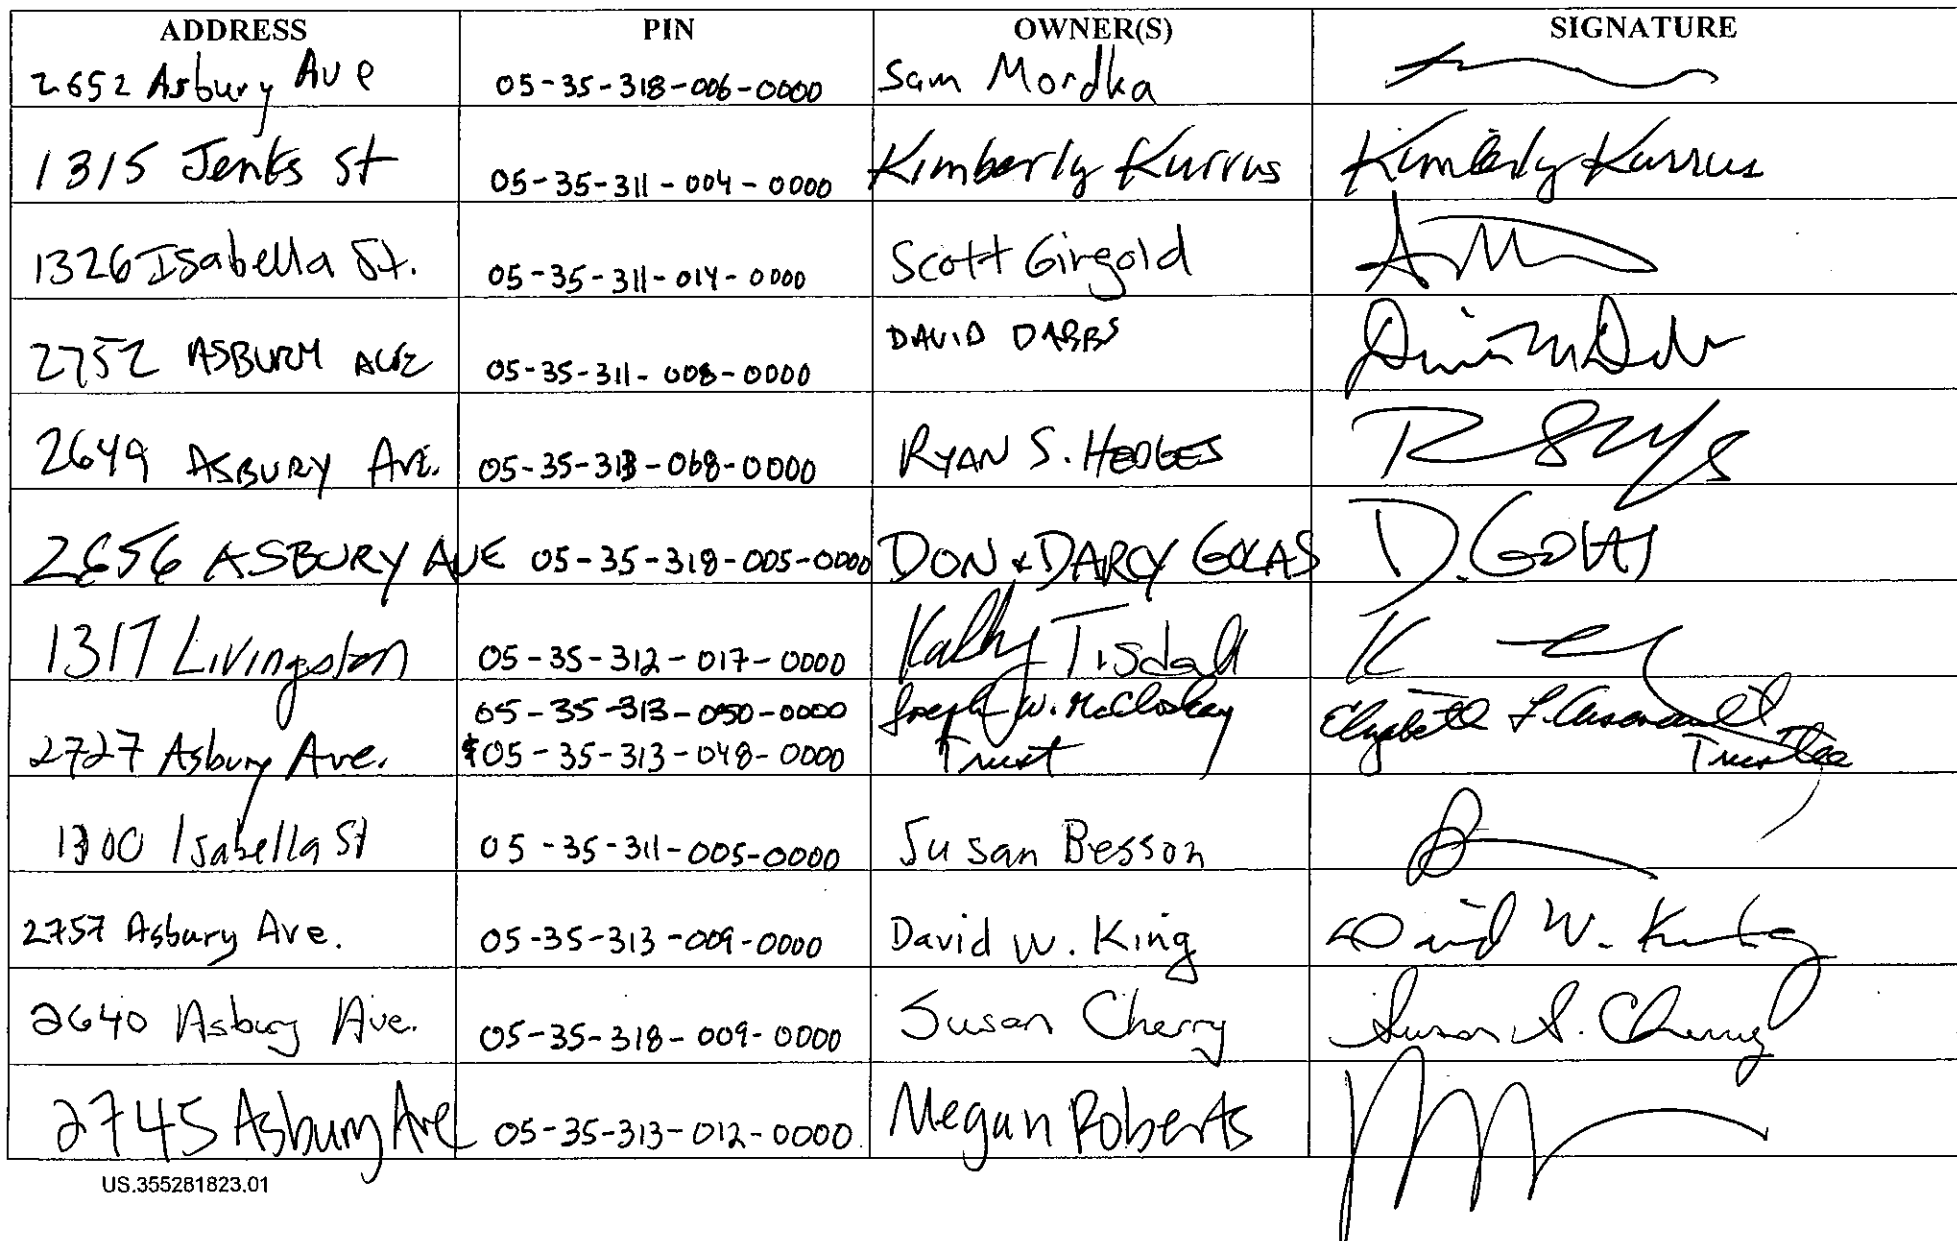 ADDRESS PIN OWNER(S) SIGNATURE
2652 Asbury Ave 05-35-318-006-0000 Sam Mordka
1315 Jenks St 05-35-311-004-0000 Kimberly Kurrus Kimberly Kurrus
1326 Isabella St. 05-35-311-014-0000 Scott Gingold
2752 ASBURY AVE 05-35-311-008-0000 DAVID DABBS
2649 ASBURY AVE. 05-35-313-068-0000 RYAN S. HEDGES
2656 ASBURY AVE 05-35-318-005-0000 DON & DARCY GOLAS D. GOLAS
1317 Livingston 05-35-312-017-0000 Kathy Tisdall K
05-35-313-050-0000 Joseph W. McCloskey Elizabeth L.
2727 Asbury Ave. & 05-35-313-048-0000 Trust Trustee
1300 Isabella St 05-35-311-005-0000 Susan Besson
2757 Asbury Ave. 05-35-313-009-0000 David W. King David W. King
2640 Asbury Ave. 05-35-318-009-0000 Susan Cherry Susan S. Cherry
2745 Asbury Ave 05-35-313-012-0000 Megan Roberts
US.355281823.01